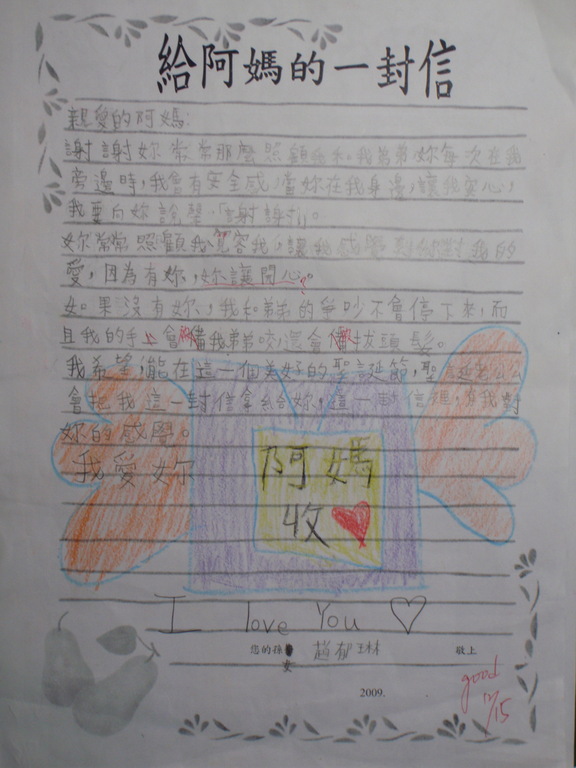 給阿媽的一封信
親愛的阿媽:
謝謝妳常常那麼照顧我和我弟弟,妳每次在我
旁邊時,我會有安全感,當妳在我身邊,讓我安心,
我要向妳說聲:「謝謝」。
妳常常照顧我,寬容我,讓我感覺到妳對我的
愛,因為有妳,妳讓開心。
如果沒有妳,我和弟弟的爭吵不會停下來,而
且我的手上會被我弟弟咬,還會被拔頭髮。
我希望,能在這一個美好的聖誕節,聖誕老公公
會把我這一封信拿給妳,這一封信裡,有我對
妳的感覺。
我愛妳
阿媽
收
I love You
您的孫女 趙郁琳 敬上
2009.
good
12/15